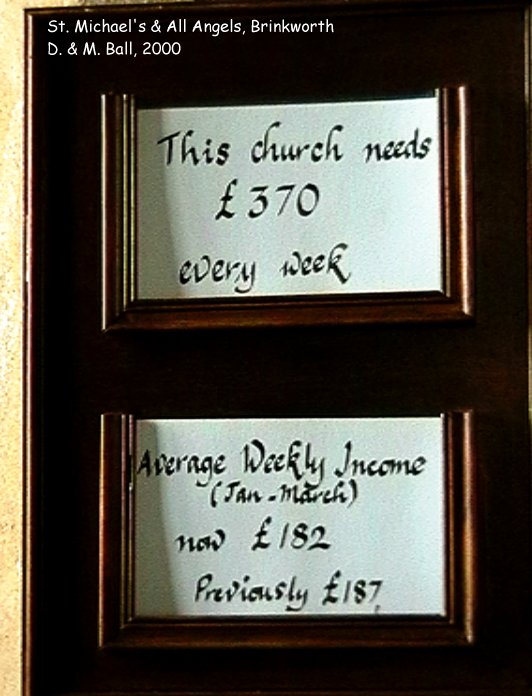 St. Michael's & All Angels, Brinkworth
D. & M. Ball, 2000
This church needs
£370
every week
Average Weekly Income
(Jan - March)
now £182
Previously £187